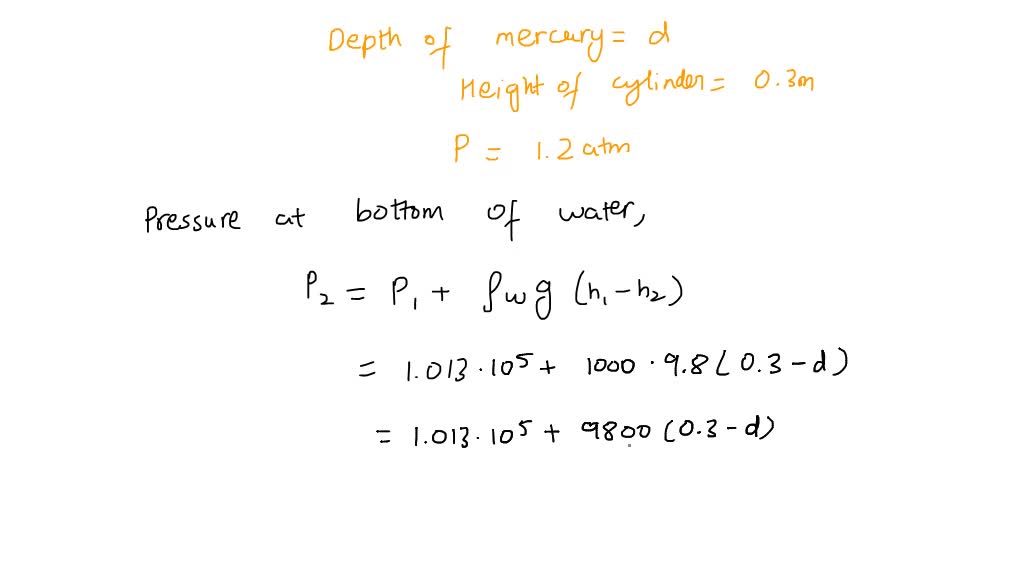 Depth of mercury = d
Height of cylinder = 0.3m
P = 1.2 atm
Pressure at bottom of water,
P₂ = P₁ + ρw g (h₁ - h₂)
= 1.013 · 10⁵ + 1000 · 9.8 (0.3 - d)
= 1.013 · 10⁵ + 9800 (0.3 - d)